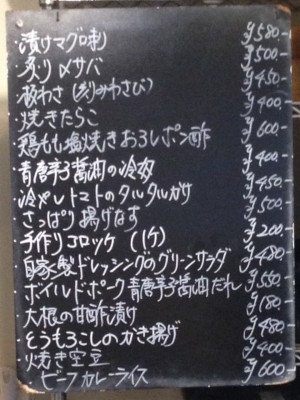 漬けマグロ刺 ¥580-
炙り〆サバ ¥500-
板わさ（刻みわさび） ¥450-
焼きたらこ ¥400-
鶏もも塩焼きおろしポン酢 ¥600-
青唐辛子醤油の冷奴 ¥400-
冷やしトマトのタルタルがけ ¥450-
さっぱり揚げなす ¥500-
手作りコロッケ（1ケ） ¥200-
自家製ドレッシングのグリーンサラダ ¥480-
ボイルドポーク青唐辛子醤油だれ ¥550-
大根の甘酢漬け ¥180-
とうもろこしのかき揚げ ¥480-
焼き空豆 ¥400-
ビーフカレーライス ¥600-